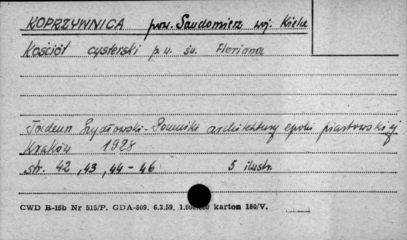 KOPRZYWNICA pow. Sandomierz woj. Kielce
Kościół cysterski p.w. św. Floriana
Tadeusz Szydłowski - Pomniki architektury epoki piastowskiej
Kraków 1928
str. 42, 43, 44 - 46 5 ilustr.
CWD B-15b Nr 515/P. GDA-809. 6.3.59. karton 180/V.